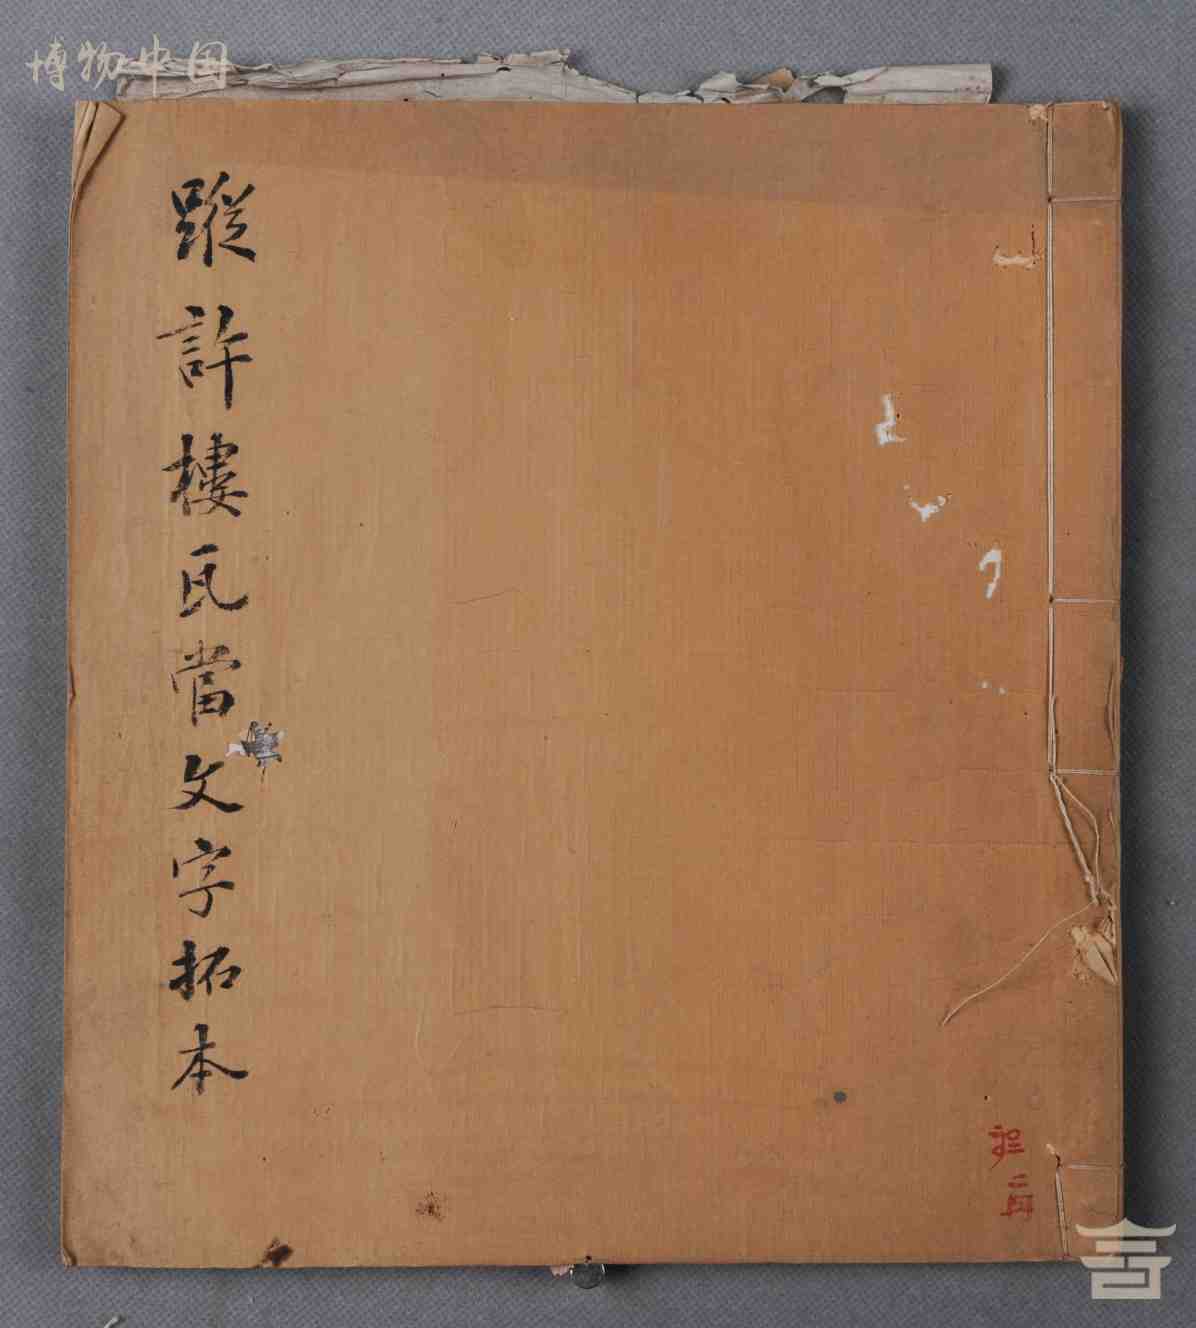 博物中国
蹤許樓瓦當文字拓本
二冊